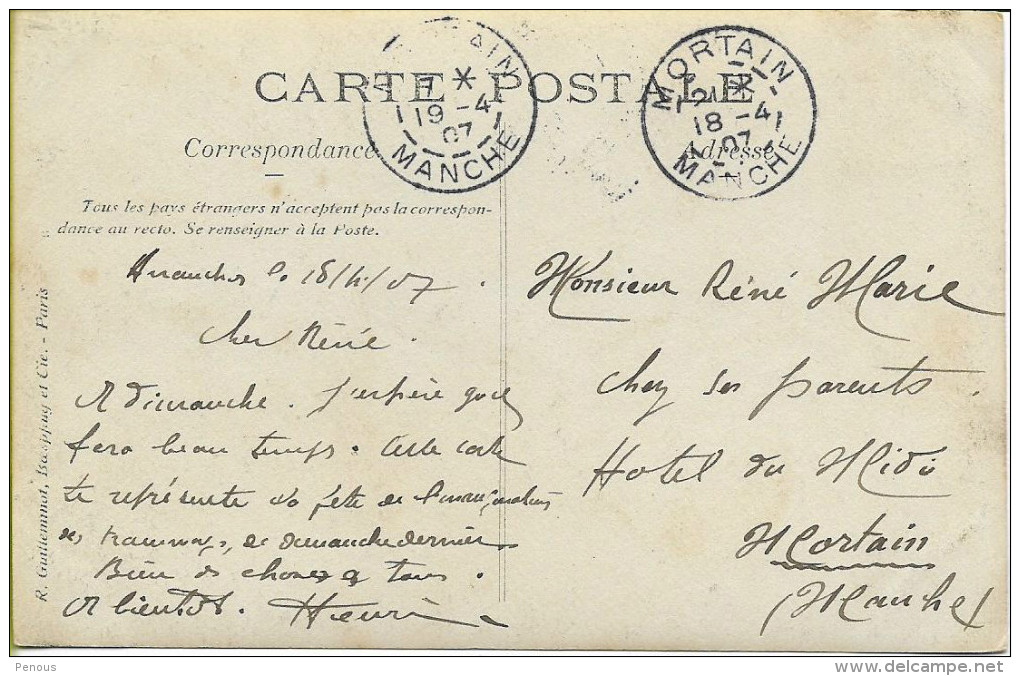 CARTE POSTALE
MORTAIN
7 *
19 - 4
07
MANCHE
MORTAIN
2 *
18 - 4
07
MANCHE
Correspondance
Adresse
Tous les pays étrangers n'acceptent pas la correspon-
dance au recto. Se renseigner à la Poste.
R. Guilleminot, Bœspflug et Cie. - Paris
Avranches le 18/4/07.
Cher Réné.
A dimanche. J'espère qu'il
fera beau temps. Cette carte
te représente la fête de l'inauguration
des tramways, de dimanche dernier
Bien des choses à tous.
A bientôt. Henri
Monsieur Réné Marie
chez ses parents.
Hotel du Midi
Mortain
(Manche)
Penous
www.delcampe.net